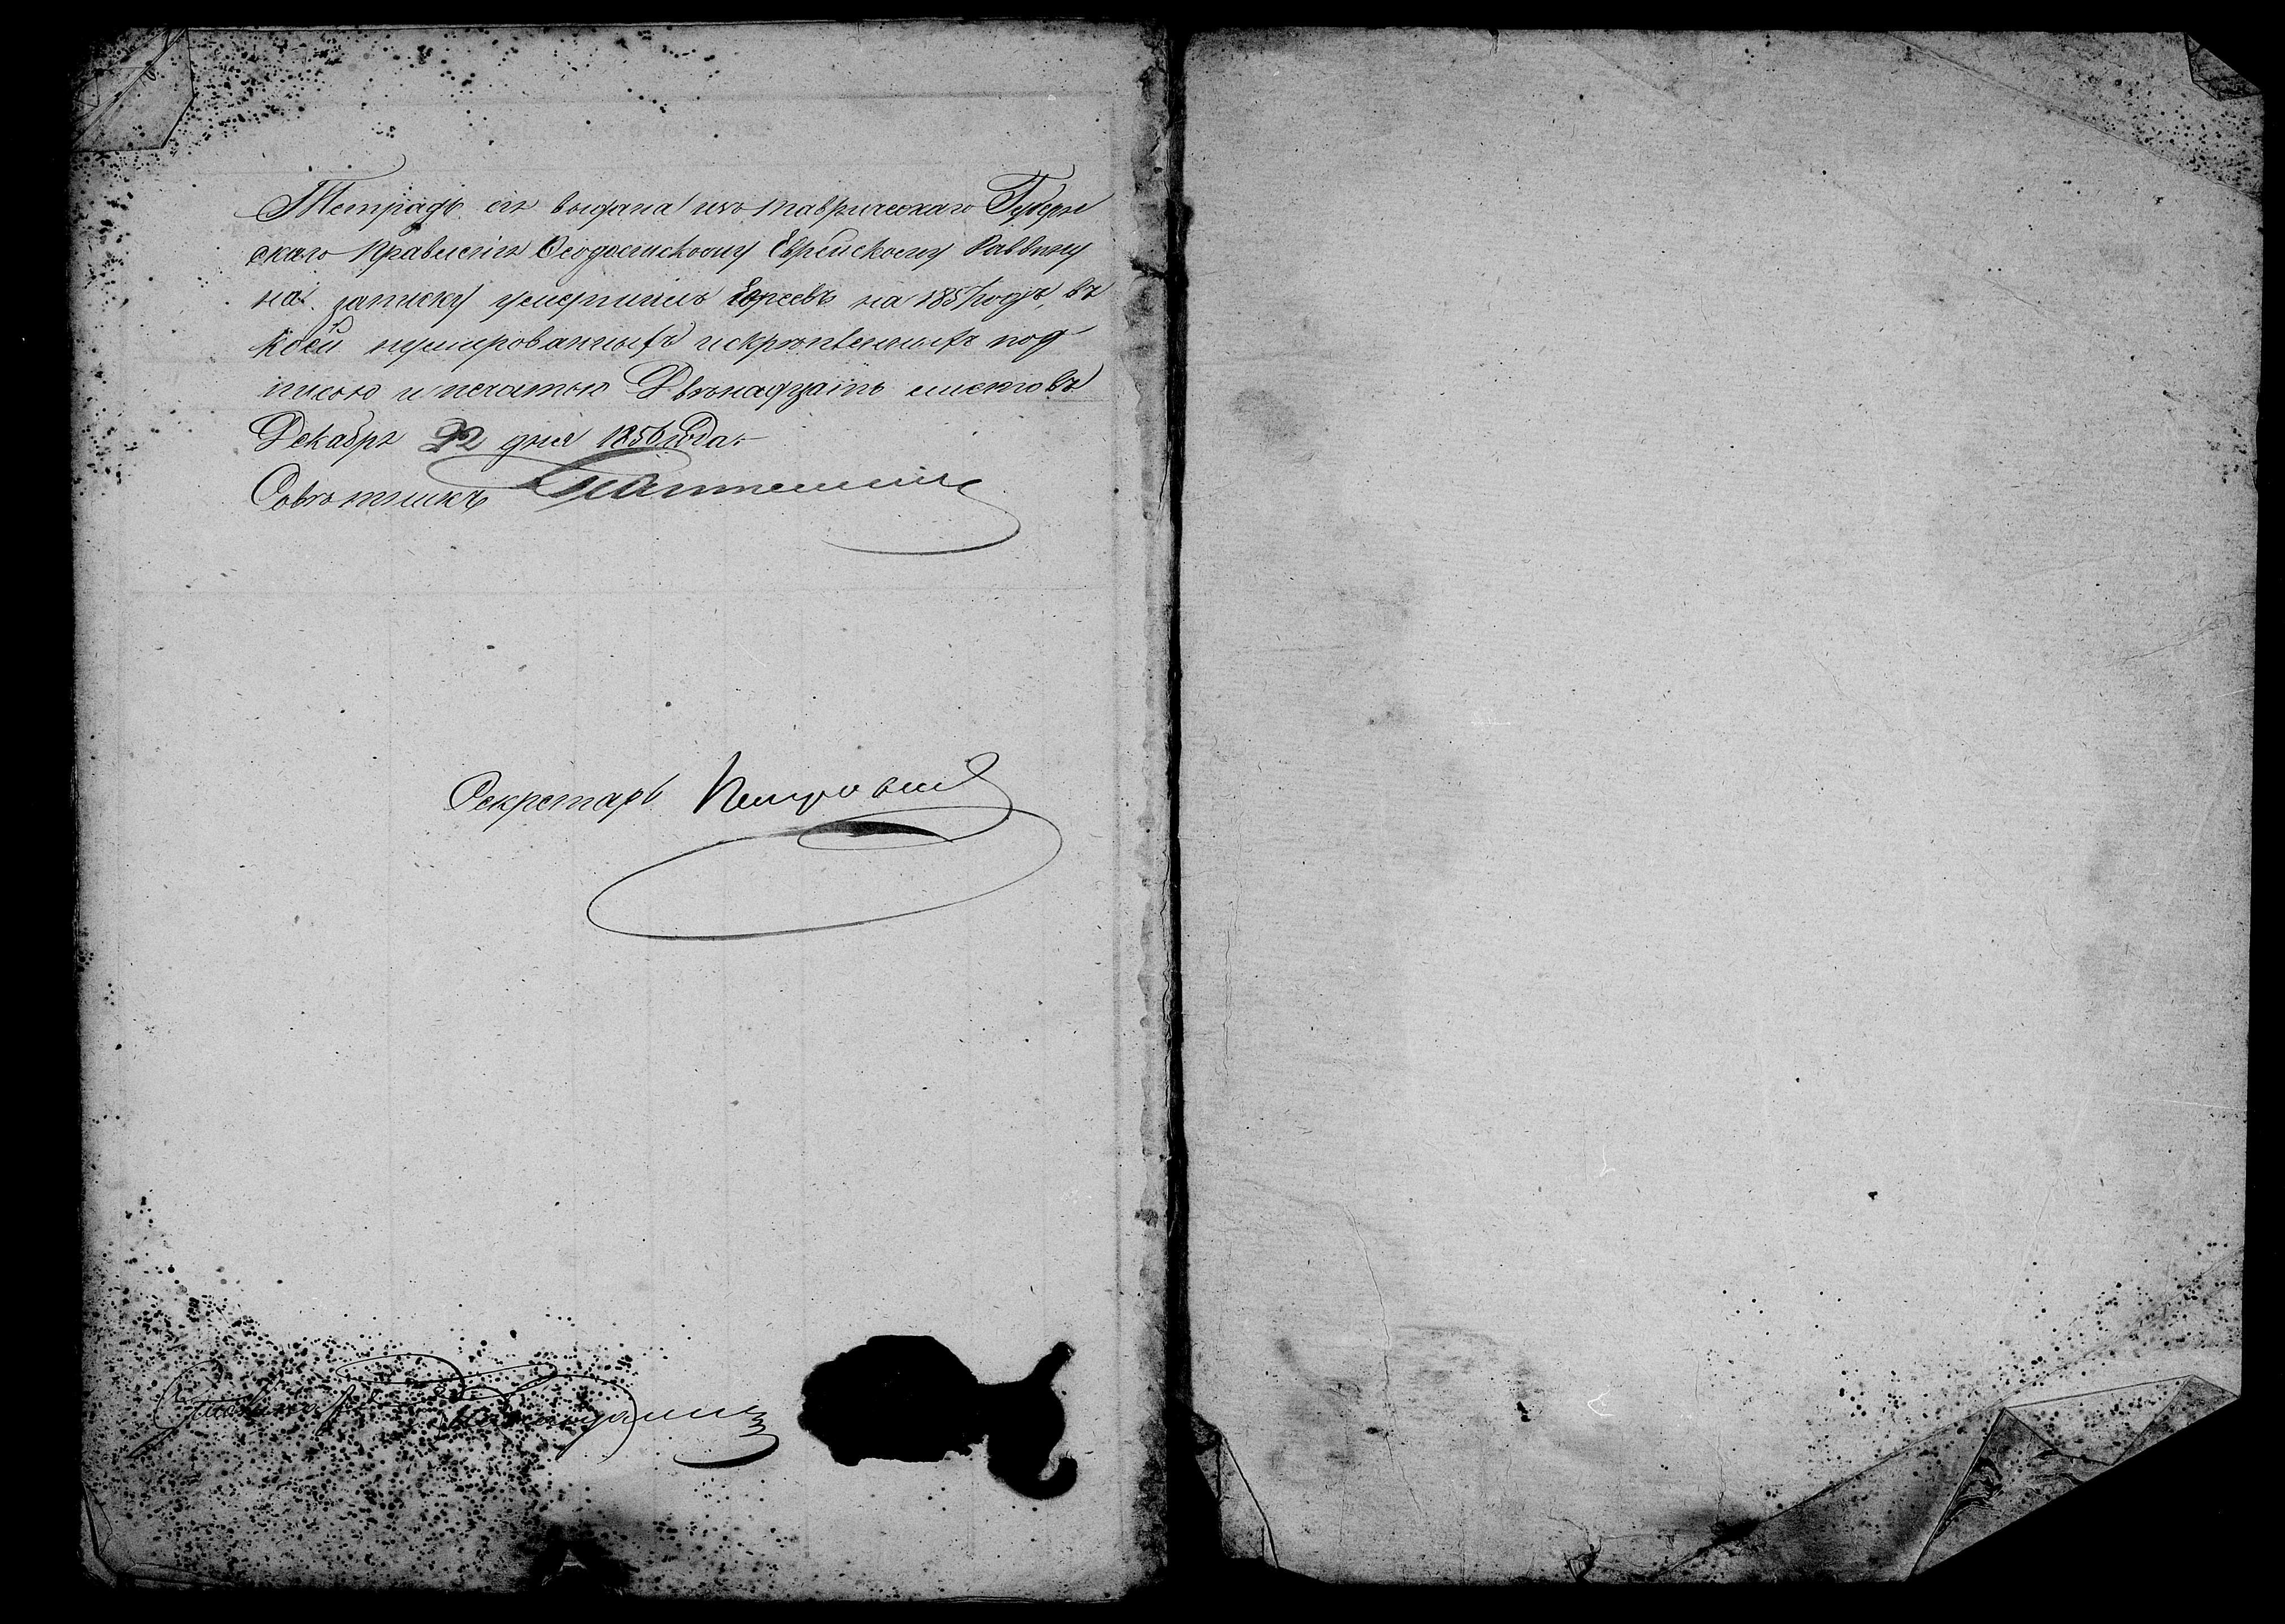 Тетрадь сія выдана изъ Таврическаго Губерн
скаго Правленія Ѳеодосійскому Еврейскому Раввину
на записку умершихъ Евреевъ на 1857 годъ, въ
коей нумерованныхъ и скрѣпленныхъ под
писью и печатью Двѣнадцать листовъ
Декабря 22 дня 1856 года.
Совѣтникъ
Секретарь